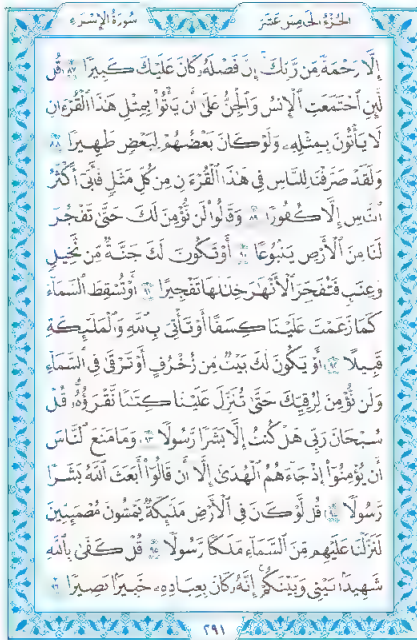 سُورَةُ الإِسْرَاءِ الجُزْءُ الخَامِسَ عَشَرَ
إِلَّا رَحْمَةً مِّن رَّبِّكَ إِنَّ فَضْلَهُۥ كَانَ عَلَيْكَ كَبِيرًا ٨٧ قُل
لَّئِنِ ٱجْتَمَعَتِ ٱلْإِنسُ وَٱلْجِنُّ عَلَىٰٓ أَن يَأْتُوا۟ بِمِثْلِ هَٰذَا ٱلْقُرْءَانِ
لَا يَأْتُونَ بِمِثْلِهِۦ وَلَوْ كَانَ بَعْضُهُمْ لِبَعْضٍ ظَهِيرًا ٨٨
وَلَقَدْ صَرَّفْنَا لِلنَّاسِ فِى هَٰذَا ٱلْقُرْءَانِ مِن كُلِّ مَثَلٍ فَأَبَىٰٓ أَكْثَرُ
ٱلنَّاسِ إِلَّا كُفُورًا ٨٩ وَقَالُوا۟ لَن نُّؤْمِنَ لَكَ حَتَّىٰ تَفْجُرَ
لَنَا مِنَ ٱلْأَرْضِ يَنۢبُوعًا ٩٠ أَوْ تَكُونَ لَكَ جَنَّةٌ مِّن نَّخِيلٍ
وَعِنَبٍ فَتُفَجِّرَ ٱلْأَنْهَٰرَ خِلَٰلَهَا تَفْجِيرًا ٩١ أَوْ تُسْقِطَ ٱلسَّمَآءَ
كَمَا زَعَمْتَ عَلَيْنَا كِسَفًا أَوْ تَأْتِىَ بِٱللَّهِ وَٱلْمَلَٰٓئِكَةِ
قَبِيلًا ٩٢ أَوْ يَكُونَ لَكَ بَيْتٌ مِّن زُخْرُفٍ أَوْ تَرْقَىٰ فِى ٱلسَّمَآءِ
وَلَن نُّؤْمِنَ لِرُقِيِّكَ حَتَّىٰ تُنَزِّلَ عَلَيْنَا كِتَٰبًا نَّقْرَؤُهُۥ قُلْ
سُبْحَانَ رَبِّى هَلْ كُنتُ إِلَّا بَشَرًا رَّسُولًا ٩٣ وَمَا مَنَعَ ٱلنَّاسَ
أَن يُؤْمِنُوٓا۟ إِذْ جَآءَهُمُ ٱلْهُدَىٰٓ إِلَّآ أَن قَالُوٓا۟ أَبَعَثَ ٱللَّهُ بَشَرًا
رَّسُولًا ٩٤ قُل لَّوْ كَانَ فِى ٱلْأَرْضِ مَلَٰٓئِكَةٌ يَمْشُونَ مُطْمَئِنِّينَ
لَنَزَّلْنَا عَلَيْهِم مِّنَ ٱلسَّمَآءِ مَلَكًا رَّسُولًا ٩٥ قُلْ كَفَىٰ بِٱللَّهِ
شَهِيدًۢا بَيْنِى وَبَيْنَكُمْ إِنَّهُۥ كَانَ بِعِبَادِهِۦ خَبِيرًۢا بَصِيرًا ٩٦
٢٩١